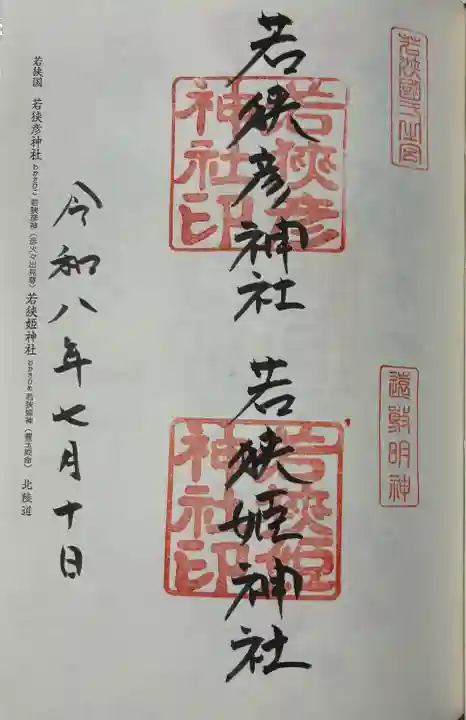 若狭國一之宮
遠敷明神
若狭彦神社
若狭彦神社印
若狭姫神社
若狭姫神社印
令和八年七月十日
若狭国 若狭彦神社 わかさひこ 若狭彦神(彦火々出見尊) 若狭姫神社 わかさひめ 若狭姫神(豊玉姫命) 北陸道